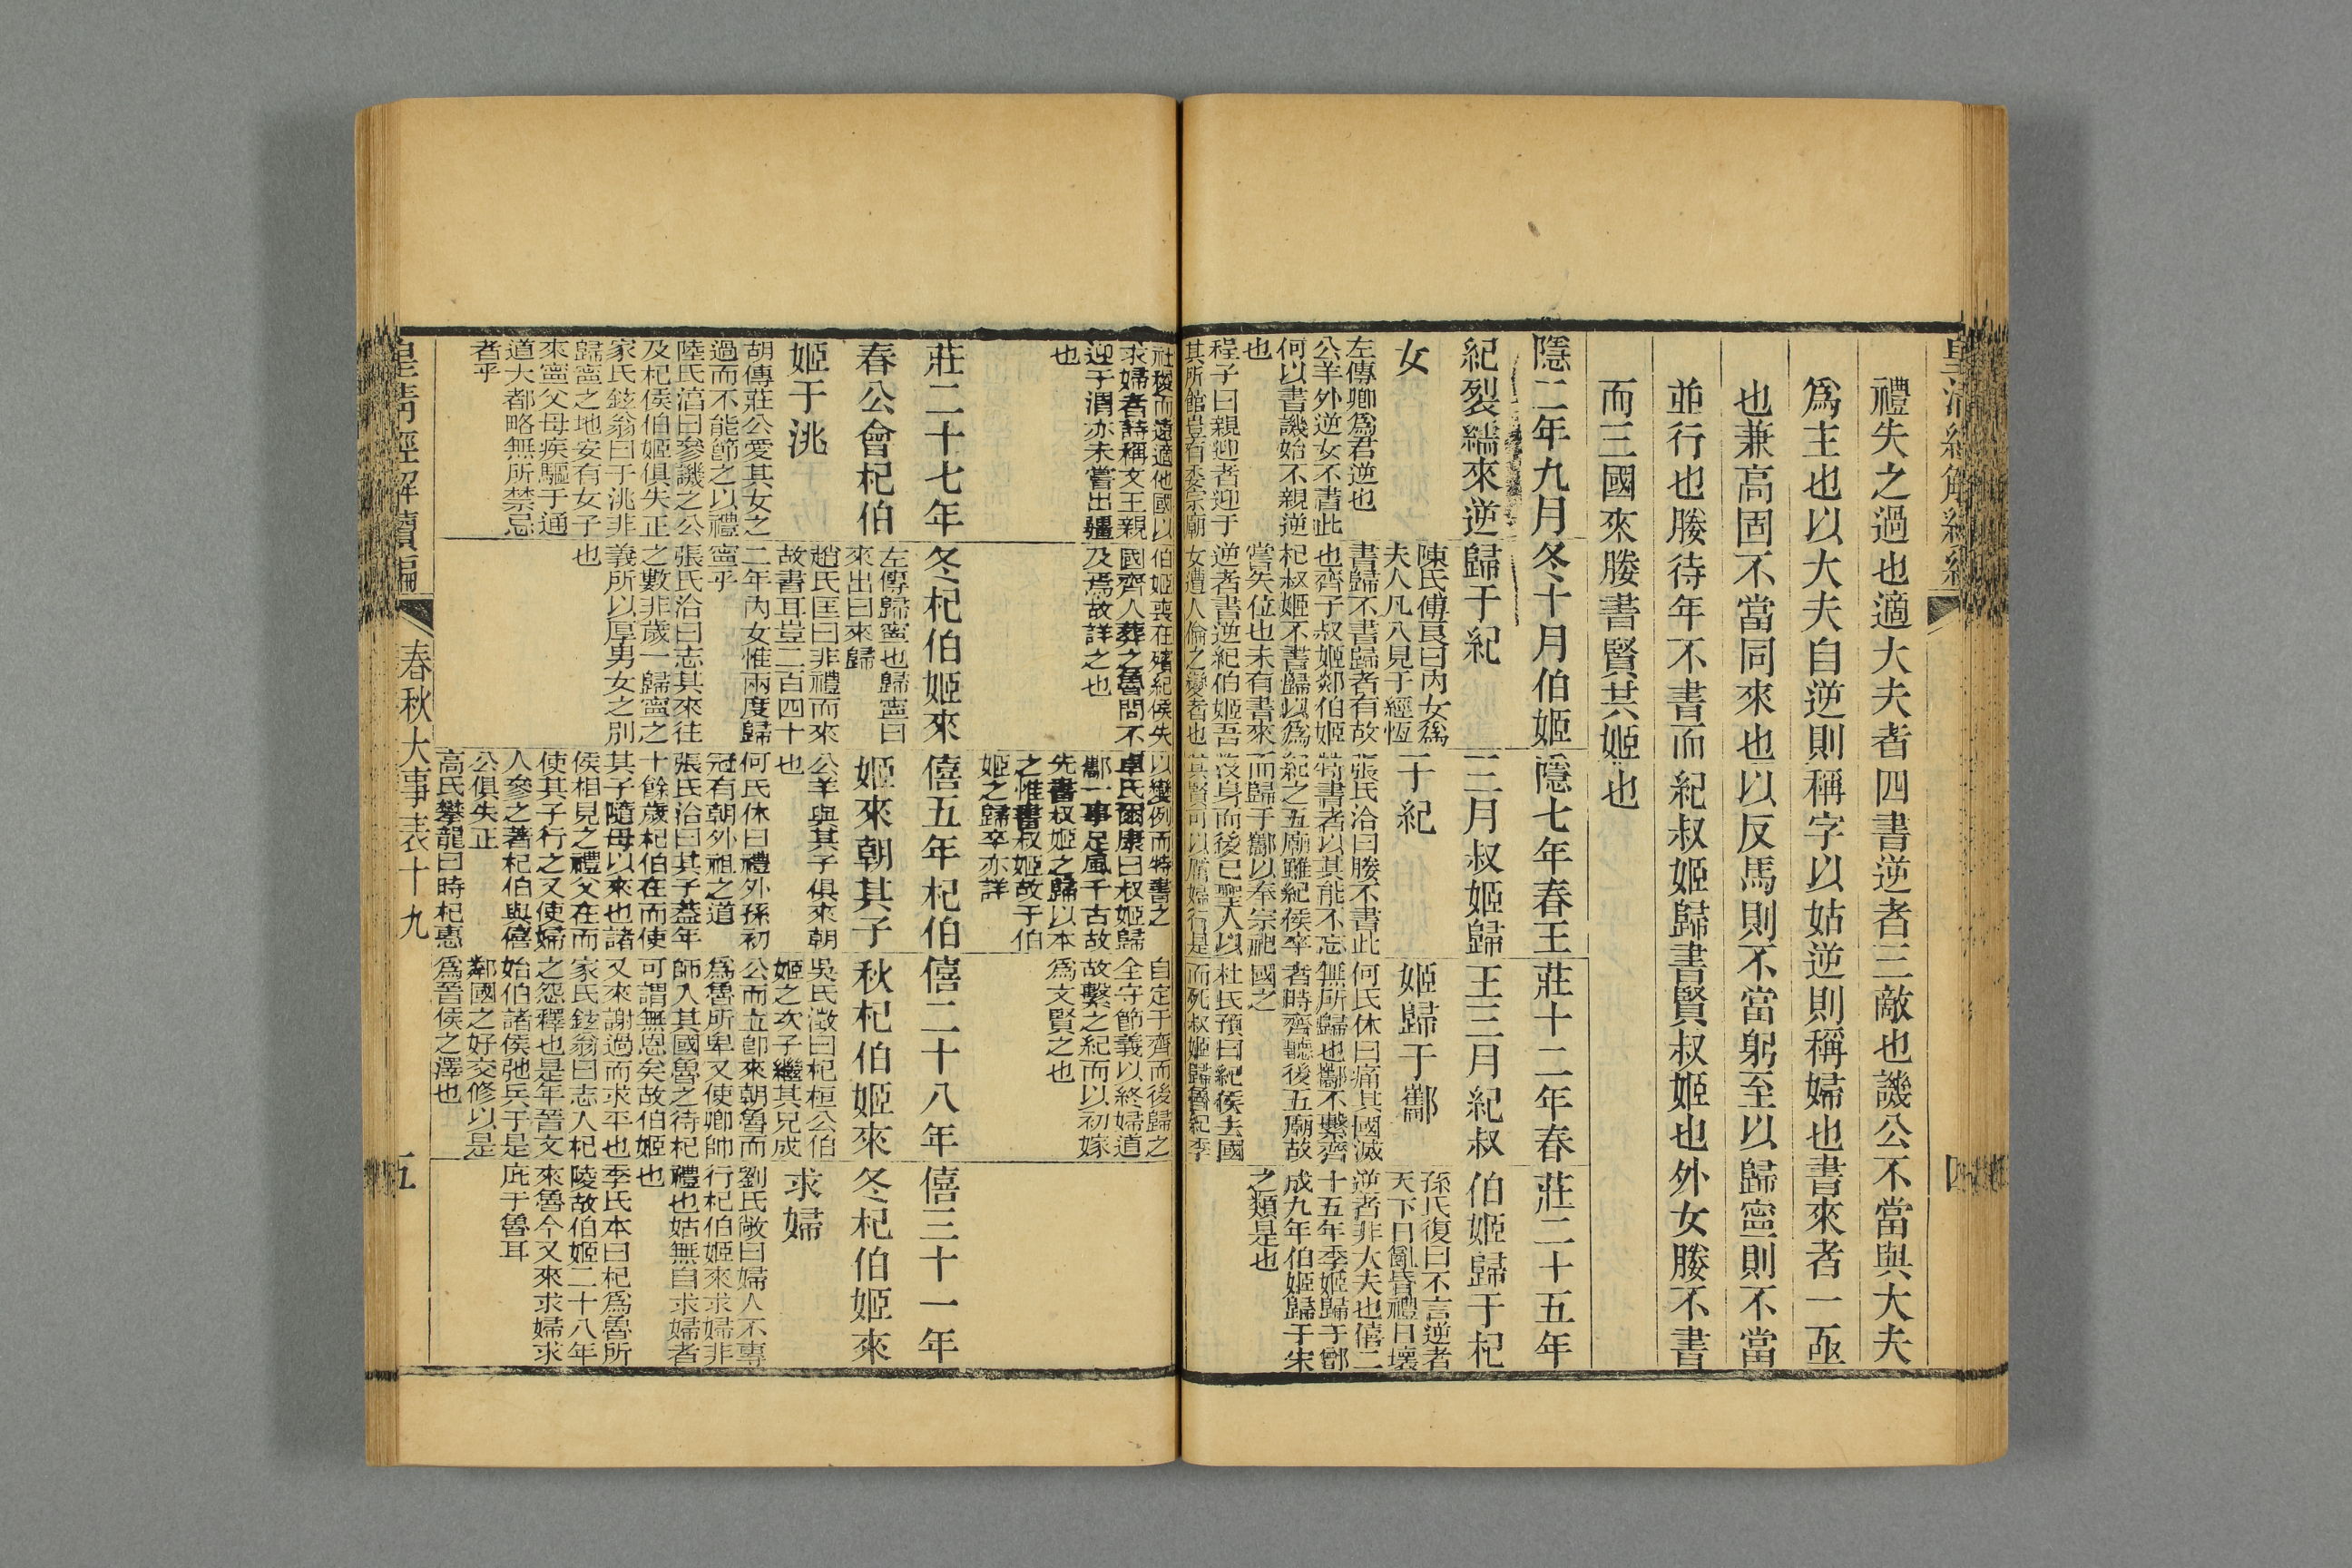 皇清經解續編
四
禮失之過也適大夫者四書逆者三敵也譏公不當與大夫
爲主也以大夫自逆則稱字以姑逆則稱婦也書來者一亟
也兼高固不當同來也以反馬則不當躬至以歸寧則不當
並行也媵待年不書而紀叔姬歸書賢叔姬也外女媵不書
而三國來媵書賢共姬也
隱二年九月
紀裂繻來逆
女
左傳卿爲君逆也
公羊外逆女不書此
何以書譏始不親逆
也
程子曰親迎者迎于
其所館豈有委宗廟
社稷而遠適他國以
求婦者詩稱文王親
迎于渭亦未嘗出疆
也
冬十月伯姬
歸于紀
陳氏傅良曰內女爲
夫人凡八見于經恆
書歸不書歸者有故
也齊子叔姬郯伯姬
杞叔姬不書歸以爲
嘗失位也未有書來
逆者書逆紀伯姬吾
女遭人倫之變者也
伯姬喪在殯紀侯失
國齊人葬之魯問不
及焉故詳之也
隱七年春王
三月叔姬歸
于紀
張氏洽曰媵不書此
特書者以其能不忘
紀之五廟雖紀侯卒
而歸于酅以奉宗祀
沒身而後已聖人以
其賢可以厲婦行是
以變例而特書之
卓氏爾康曰叔姬歸
酅一事足風千古故
先書叔姬之歸以本
之惟書叔姬故于伯
姬之歸卒亦詳
莊十二年春
王三月紀叔
姬歸于酅
何氏休曰痛其國滅
無所歸也酅不繫齊
者時齊聽後五廟故
國之
杜氏預曰紀侯去國
而死叔姬歸魯紀季
自定于齊而後歸之
全守節義以終婦道
故繫之紀而以初嫁
爲文賢之也
莊二十五年
伯姬歸于杞
孫氏復曰不言逆者
天下日亂昏禮日壞
逆者非大夫也僖二
十五年季姬歸于鄫
成九年伯姬歸于宋
之類是也
莊二十七年
春公會杞伯
姬于洮
胡傳莊公愛其女之
過而不能節之以禮
陸氏淳曰參譏之公
及杞侯伯姬俱失正
家氏鉉翁曰于洮非
歸寧之地安有女子
來寧父母疾驅于通
道大都略無所禁忌
者乎
冬杞伯姬來
左傳歸寧也歸寧曰
來出曰來歸
趙氏匡曰非禮而來
故書耳豈二百四十
二年內女惟兩度歸
寧乎
張氏洽曰志其來往
之數非歲一歸寧之
義所以厚男女之別
也
僖五年杞伯
姬來朝其子
公羊與其子俱來朝
也
何氏休曰禮外孫初
冠有朝外祖之道
張氏洽曰其子蓋年
十餘歲杞伯在而使
其子隨母以來也諸
侯相見之禮父在而
使其子行之又使婦
人參之著杞伯與僖
公俱失正
高氏攀龍曰時杞惠
僖二十八年
秋杞伯姬來
吳氏澂曰杞桓公伯
姬之次子繼其兄成
公而立卽來朝魯而
爲魯所卑又使卿帥
師入其國魯之待杞
可謂無恩矣故伯姬
又來謝過而求平也
家氏鉉翁曰志人杞
之怨釋也是年晉文
始伯諸侯弛兵于是
鄰國之好交修以是
爲晉侯之澤也
僖三十一年
冬杞伯姬來
求婦
劉氏敞曰婦人不專
行杞伯姬來求婦非
禮也姑無自求婦者
也
季氏本曰杞爲魯所
陵故伯姬二十八年
來魯今又來求婦求
庇于魯耳
皇清經解續編
春秋大事表十九
五